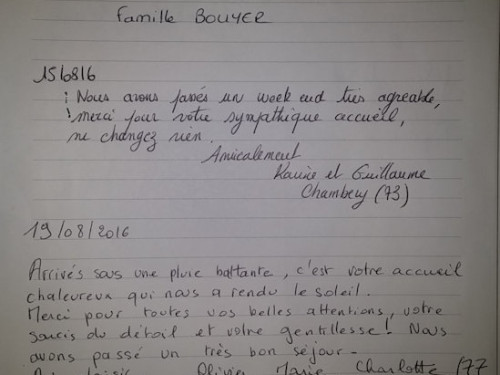 Famille BOUYER
150816
Nous avons passés un week end très agréable,
merci pour votre sympathique accueil,
ne changez rien.
Amicalement
Karine et Guillaume
Chambery (73)
19/08/2016
Arrivés sous une pluie battante, c'est votre accueil
chaleureux qui nous a rendu le soleil.
Merci pour toutes vos belles attentions, votre
soucis du détail et votre gentillesse! Nous
avons passé un très bon séjour-
Olivier Marie Charlotte (77